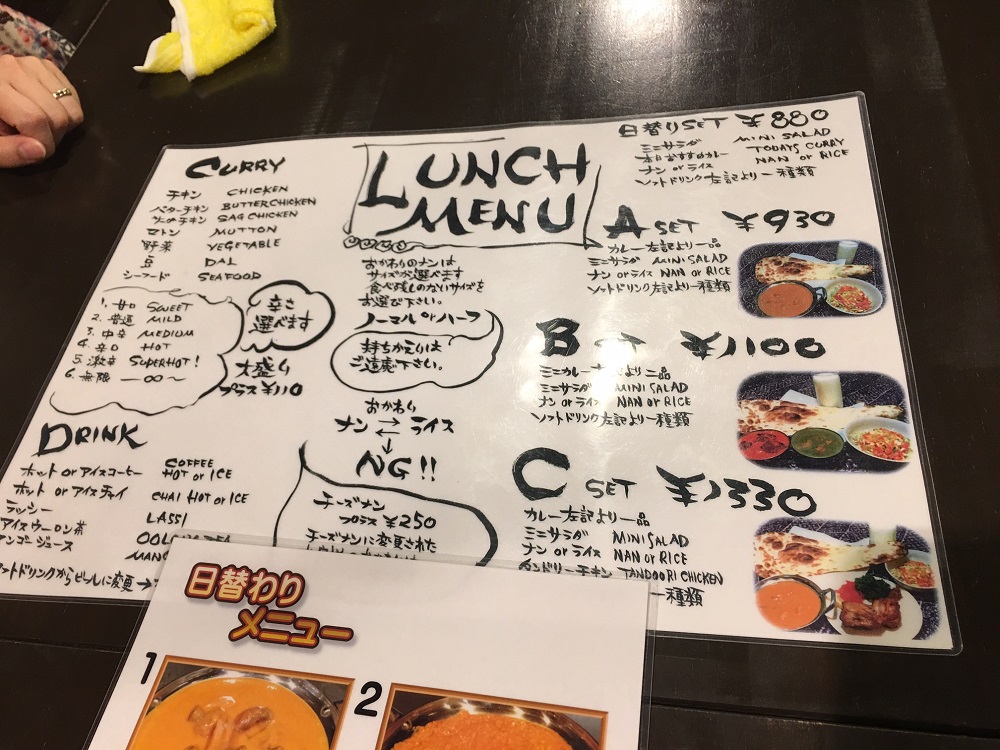 LUNCH
MENU
CURRY
チキン CHICKEN
バターチキン BUTTERCHICKEN
SAG CHICKEN
マトン MUTTON
野菜 VEGETABLE
豆 DAL
シーフード SEAFOOD
1. 甘口 SWEET
2. 普通 MILD
3. 中辛 MEDIUM
4. 辛口 HOT
5. 激辛 SUPERHOT!
6. 無限 ー∞〜
辛さ
選べます
大盛り
プラス ¥110
DRINK
ホット or アイスコーヒー COFFEE HOT or ICE
ホット or アイスチャイ CHAI HOT or ICE
ラッシー LASSI
アイスウーロン茶
マンゴージュース
ソフトドリンクからビールに変更→
おかわりのナンは
サイズが選べます
食べ残しのないサイズを
お選び下さい。
ノーマル or ハーフ
持ちかえりは
ご遠慮下さい。
おかわり
ナン ⇄ ライス
↓
NG!!
チーズナン
プラス ¥250
チーズナンに変更された
日替りSET ¥880
ミニサラダ MINI SALAD
本日おすすめカレー TODAYS CURRY
ナン or ライス NAN or RICE
ソフトドリンク左記より一種類
A SET ¥930
カレー左記より一品
ミニサラダ MINI SALAD
ナン or ライス NAN or RICE
ソフトドリンク左記より一種類
B ¥1100
ミニカレー左記より二品
ミニサラダ MINI SALAD
ナン or ライス NAN or RICE
ソフトドリンク左記より一種類
C SET ¥1330
カレー左記より一品
ミニサラダ MINI SALAD
ナン or ライス NAN or RICE
タンドリーチキン TANDOORI CHICKEN
一種類
日替わり
メニュー
1
2